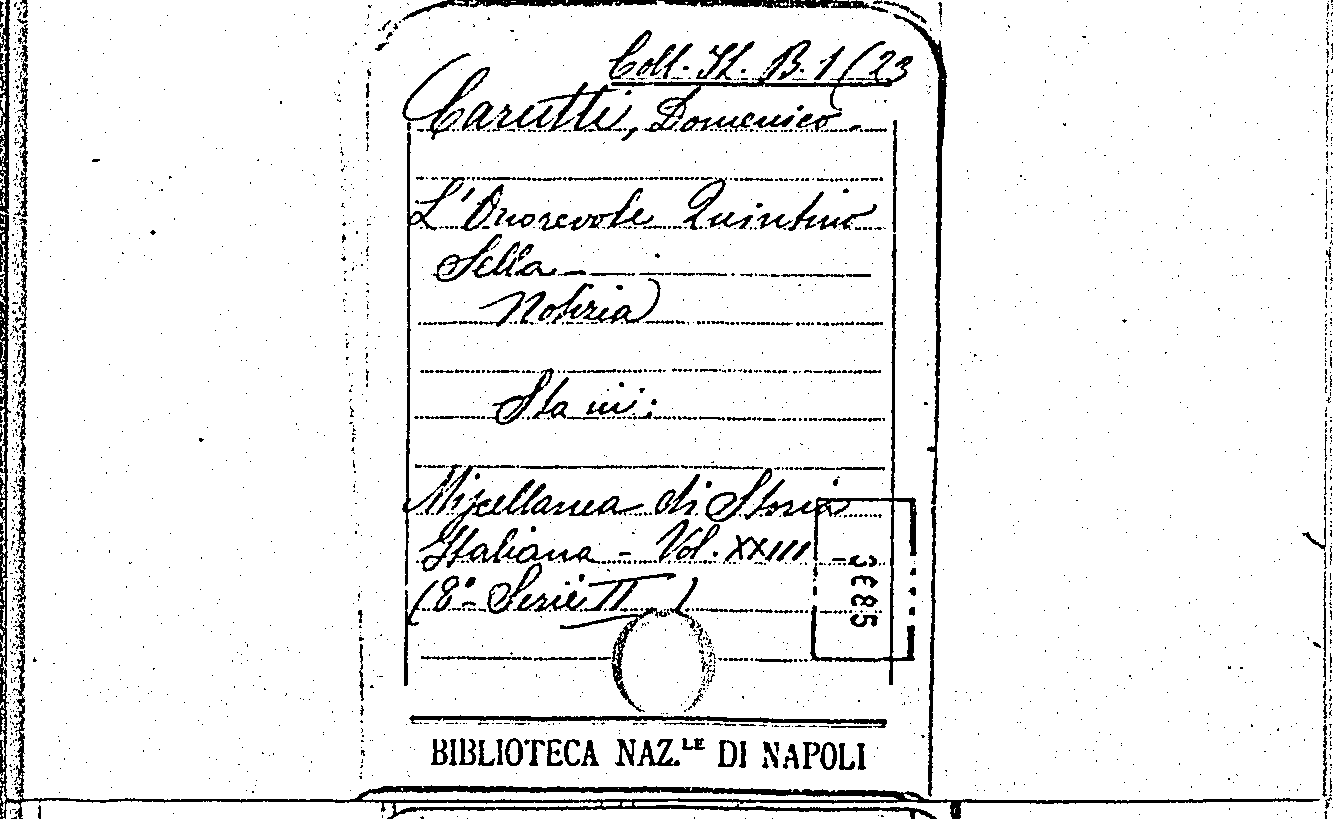 Coll. It. B. 1 (23
Carutti, Domenico.
L'Onorevole Quintino
Sella —
Notizia
Sta in:
Miscellanea di Storia
Italiana - Vol. XXIII -
(8° - Serie II)
3685
BIBLIOTECA NAZ.LE DI NAPOLI